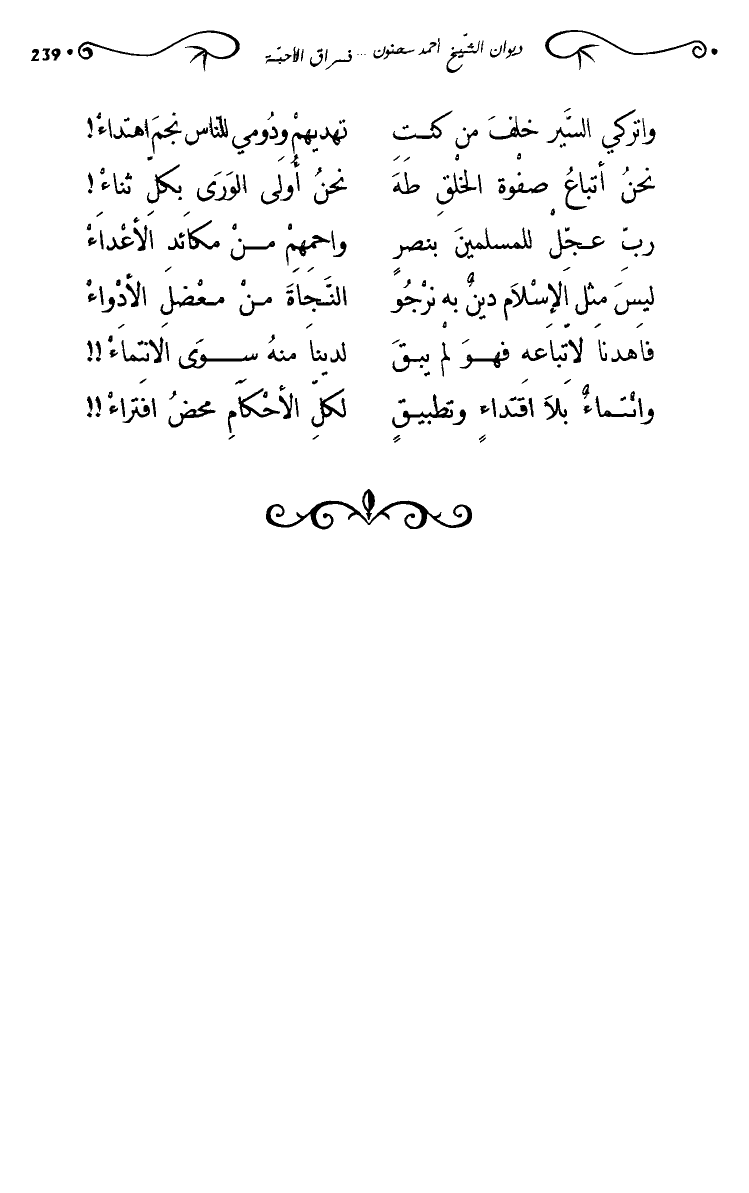 ديوان الشّيخ أحمد سحنون ... فراق الأحبّة 239
واتركي السَّير خلفَ من كنتِ تهديهمْ ودُومي للنّاس نجمَ اهتداءْ!
نحنُ أتباعُ صفْوة الخلْقِ طَهَ نحنُ أُولَى الوَرَى بكلِّ ثناءْ!
ربّ عجّلْ للمسلمينَ بنصرٍ واحمِهِمْ مِنْ مكائدِ الأعْداءْ
ليسَ مثل الإسْلاَم دينٌ به نرْجُو النَّجاةَ مِنْ معْضلِ الأدْواءْ
فاهدِنا لاتّباعِه فهوَ لمْ يبقَ لدينا منهُ سوَى الانتماءْ!!
وانْتماءٌ بلاَ اقتداءٍ وتطبيقٍ لكلّ الأحْكَامِ محضُ افتراءْ!!